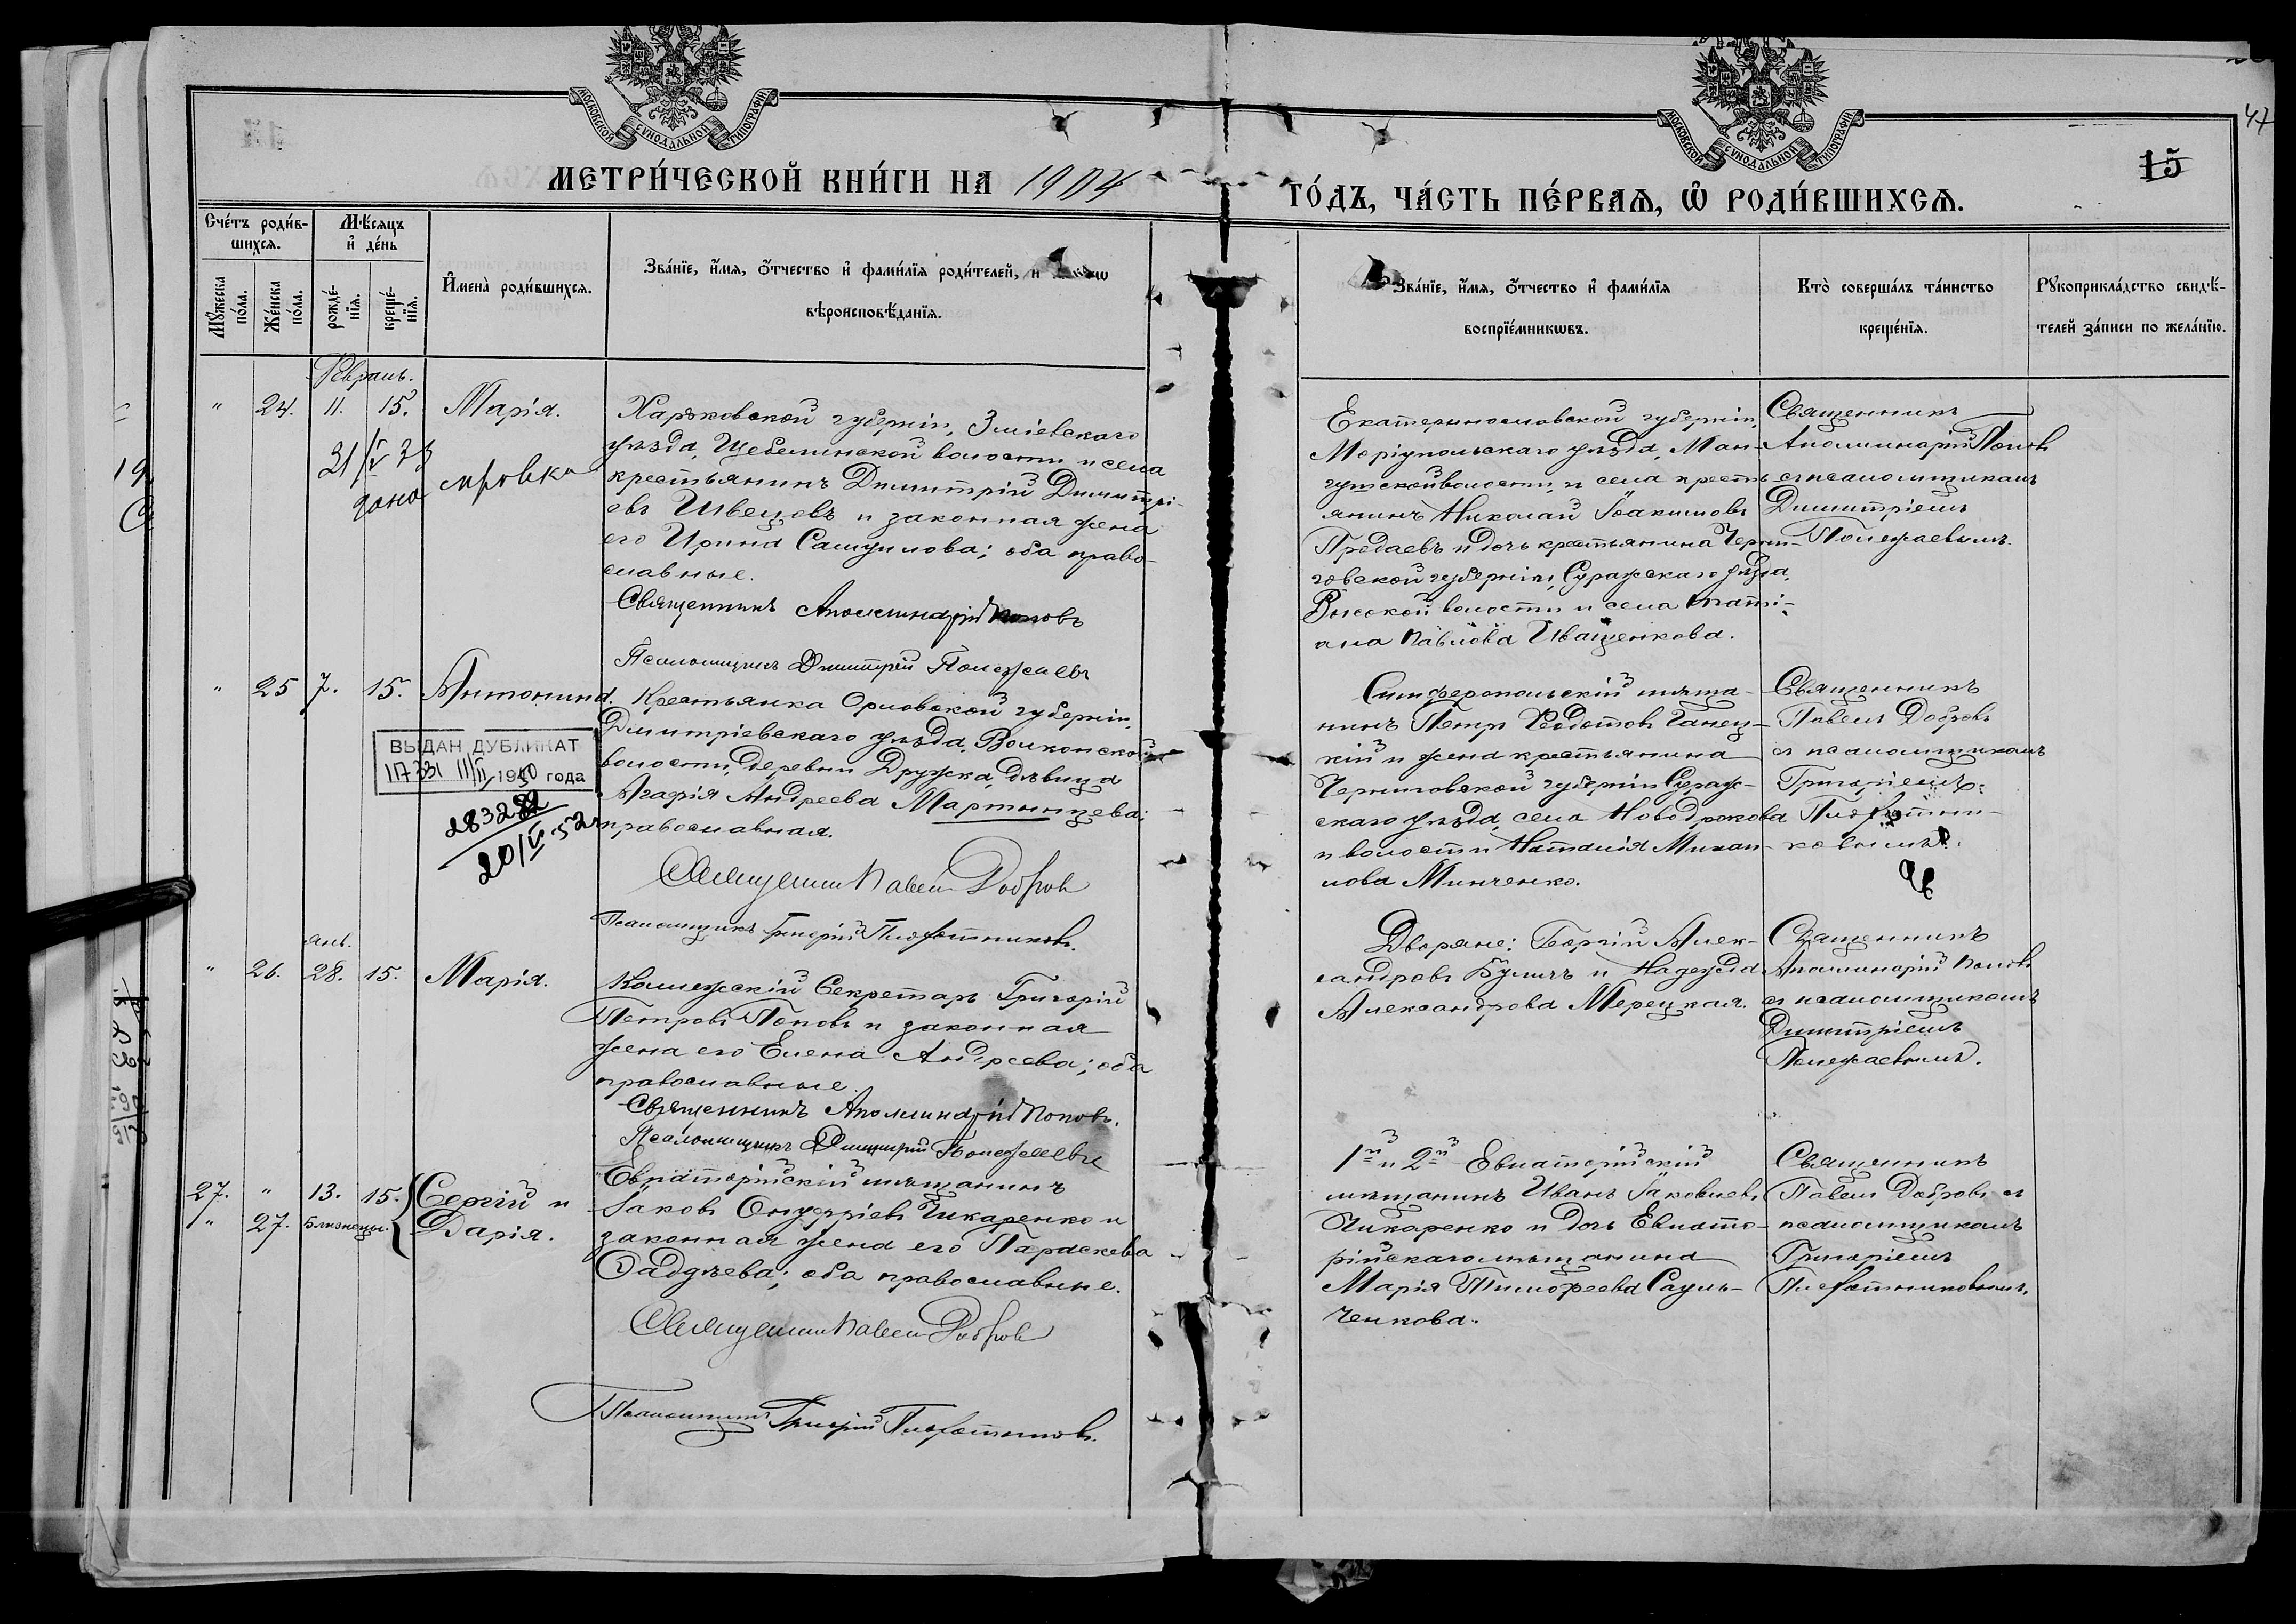 МОСКОВСКОЙ СѴНОДАЛЬНОЙ ТИПОГРАФІИ
МОСКОВСКОЙ СѴНОДАЛЬНОЙ ТИПОГРАФІИ
47
15
МЕТРИ́ЧЕСКОЙ КНИ́ГИ НА 1904
ГО́ДЪ, ЧА́СТЬ ПЕ́РВАѦ, Ѡ҆ РОДИ́ВШИХСѦ.
Сче́тъ роди́в-
шихсѧ.
Мѣ́сѧцъ
и҆ де́нь
Мꙋ́жеска по́ла.
Же́нска по́ла.
рожде́-
нїѧ.
креще́-
нїѧ.
И҆мена̀ роди́вшихсѧ.
Зва́нїе, и҆́мѧ, ѻ҆́тчество и҆ фами́лїѧ роди́телей, и
вѣроисповѣ́данїѧ.
Зва́нїе, и҆́мѧ, ѻ҆́тчество и҆ фами́лїѧ
воспрїе́мникѡвъ.
Кто̀ соверша́лъ та́инство
креще́нїѧ.
Рꙋкоприкла́дство свидѣ́-
телей за́писи по жела́нїю.
Февраль.
" 24. 11. 15. Марія.
31/V 33
Харьковской губерніи, Зміевскаго
уѣзда, Щебелинской волости и села
крестьянинъ Димитрій Димитрі-
евъ Швецовъ и законная жена
его Ирина Самуилова; оба право-
славные.
Священникъ Аполлинарій Поповъ
Псаломщикъ Димитрій Полежаевъ
Екатеринославской губерніи,
Маріупольскаго уѣзда, Ман-
гушской волости, и села кресть-
янинъ Николай Іоакимовъ
Предаевъ и дочь крестьянина Черни-
говской губерніи, Суражскаго уѣзда,
волости и села Таті-
ана Павлова Иващенкова.
Священникъ
Аполлинарій Поповъ
съ псаломщикомъ
Димитріемъ
Полежаевымъ.
" 25 7. 15. Антонина.
ВЫДАН ДУБЛИКАТ
11/II 1950 года
20/V-52
Крестьянка Орловской губерніи,
Димитріевскаго уѣзда, Волконской
волости, деревни Дружка, дѣвица
Агафія Андреева Мартынцева;
православная.
Священникъ Павелъ Добровъ
Псаломщикъ Григорій Плохотниковъ.
Симферопольскій мѣща-
нинъ Петръ Ѳеодотовъ Ганец-
кій и жена крестьянина
Черниговской губерніи Сураж-
скаго уѣзда, села Новодрокова
и волости Наталія Михаи-
лова Минченко.
Священникъ
Павелъ Добровъ
съ псаломщикомъ
Григоріемъ
Плохотни-
ковымъ.
янв.
" 26. 28. 15. Марія.
Коллежскій Секретарь Григорій
Петровъ Поповъ и законная
жена его Елена Андреева; оба
православные.
Священникъ Аполлинарій Поповъ.
Псаломщикъ Димитрій Полежаевъ
Дворяне: Георгій Алек-
сандровъ Буличъ и Надежда
Александрова Мерецкая.
Священникъ
Аполлинарій Поповъ
съ псаломщикомъ
Димитріемъ
Полежаевымъ.
27. " 13. 15. Сергій и
" 27. Близнецы. Дарія.
Евпаторійскій мѣщанинъ
Іаковъ Онуфріевъ Чикаренко и
законная жена его Параскева
Ѳаддѣева; оба православные.
Священникъ Павелъ Добровъ
Псаломщикъ Григорій Плохотниковъ.
1й и 2й Евпаторійскій
мѣщанинъ Иванъ Іаковлевъ
Чикаренко и дочь Евпато-
рійскаго мѣщанина
Марія Тимофеева Сауль-
ченкова.
Священникъ
Павелъ Добровъ съ
псаломщикомъ
Григоріемъ
Плохотниковымъ.